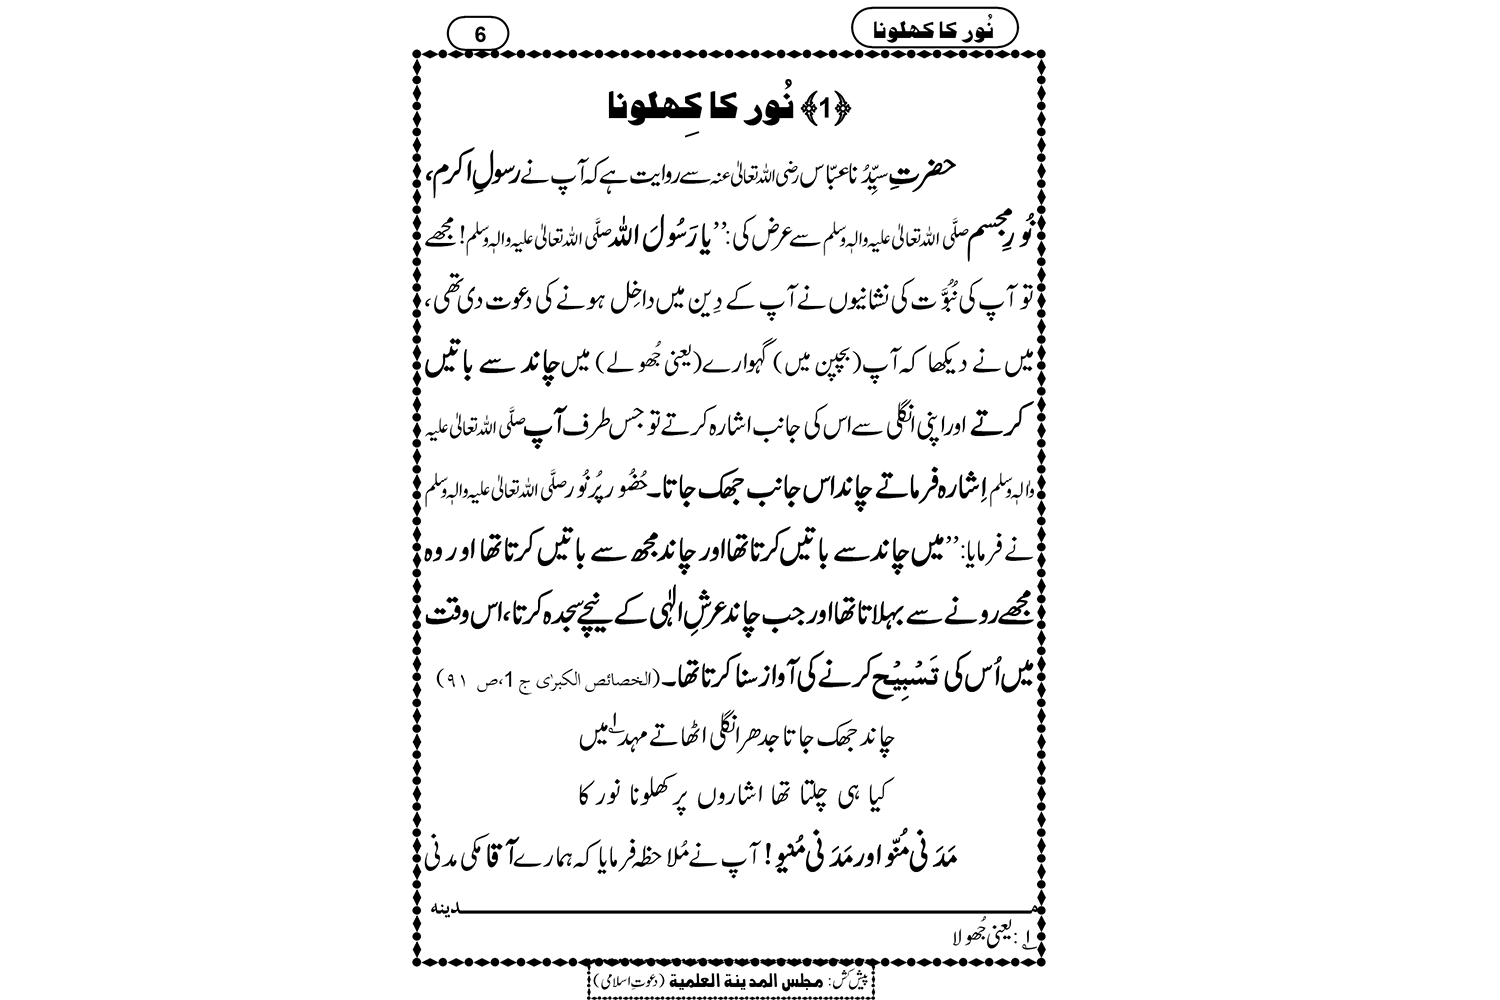 نُور کا کھلونا
6
﴿1﴾ نُور کا کِھلونا
حضرتِ سیِّدُنا عبّاس رضی اللہ تعالٰی عنہ سے روایت ہے کہ آپ نے رسولِ اکرم،
نُورِ مجسم صلَّی اللہ تعالٰی علیہ واٰلہٖ وسلم سے عرض کی: ’’یا رَسُولَ اللہ صلَّی اللہ تعالٰی علیہ واٰلہٖ وسلم! مجھے
تو آپ کی نُبُوَّت کی نشانیوں نے آپ کے دِین میں داخِل ہونے کی دعوت دی تھی،
میں نے دیکھا کہ آپ (بچپن میں) گہوارے (یعنی جُھولے) میں چاند سے باتیں
کرتے اور اپنی انگلی سے اس کی جانب اشارہ کرتے تو جس طرف آپ صلَّی اللہ تعالٰی علیہ
واٰلہٖ وسلم اِشارہ فرماتے چاند اس جانب جھک جاتا۔ حُضُور پُرنُور صلَّی اللہ تعالٰی علیہ واٰلہٖ وسلم
نے فرمایا: ’’میں چاند سے باتیں کرتا تھا اور چاند مجھ سے باتیں کرتا تھا اور وہ
مجھے رونے سے بہلاتا تھا اور جب چاند عرشِ الٰہی کے نیچے سجدہ کرتا، اس وقت
میں اُس کی تَسْبِیْح کرنے کی آواز سنا کرتا تھا۔ (الخصائص الکبرٰی ج 1،ص ۹۱)
چاند جھک جاتا جدھر انگلی اٹھاتے مہد ۱؎ میں
کیا ہی چلتا تھا اشاروں پر کھلونا نور کا
مَدَنی مُنّو اور مَدَنی مُنیو! آپ نے مُلاحظہ فرمایا کہ ہمارے آقا مکی مدنی
مـــدینہ
۱؎ : یعنی جُھولا
پیش کش: مجلس المدینة العلمیة (دعوتِ اسلامی)